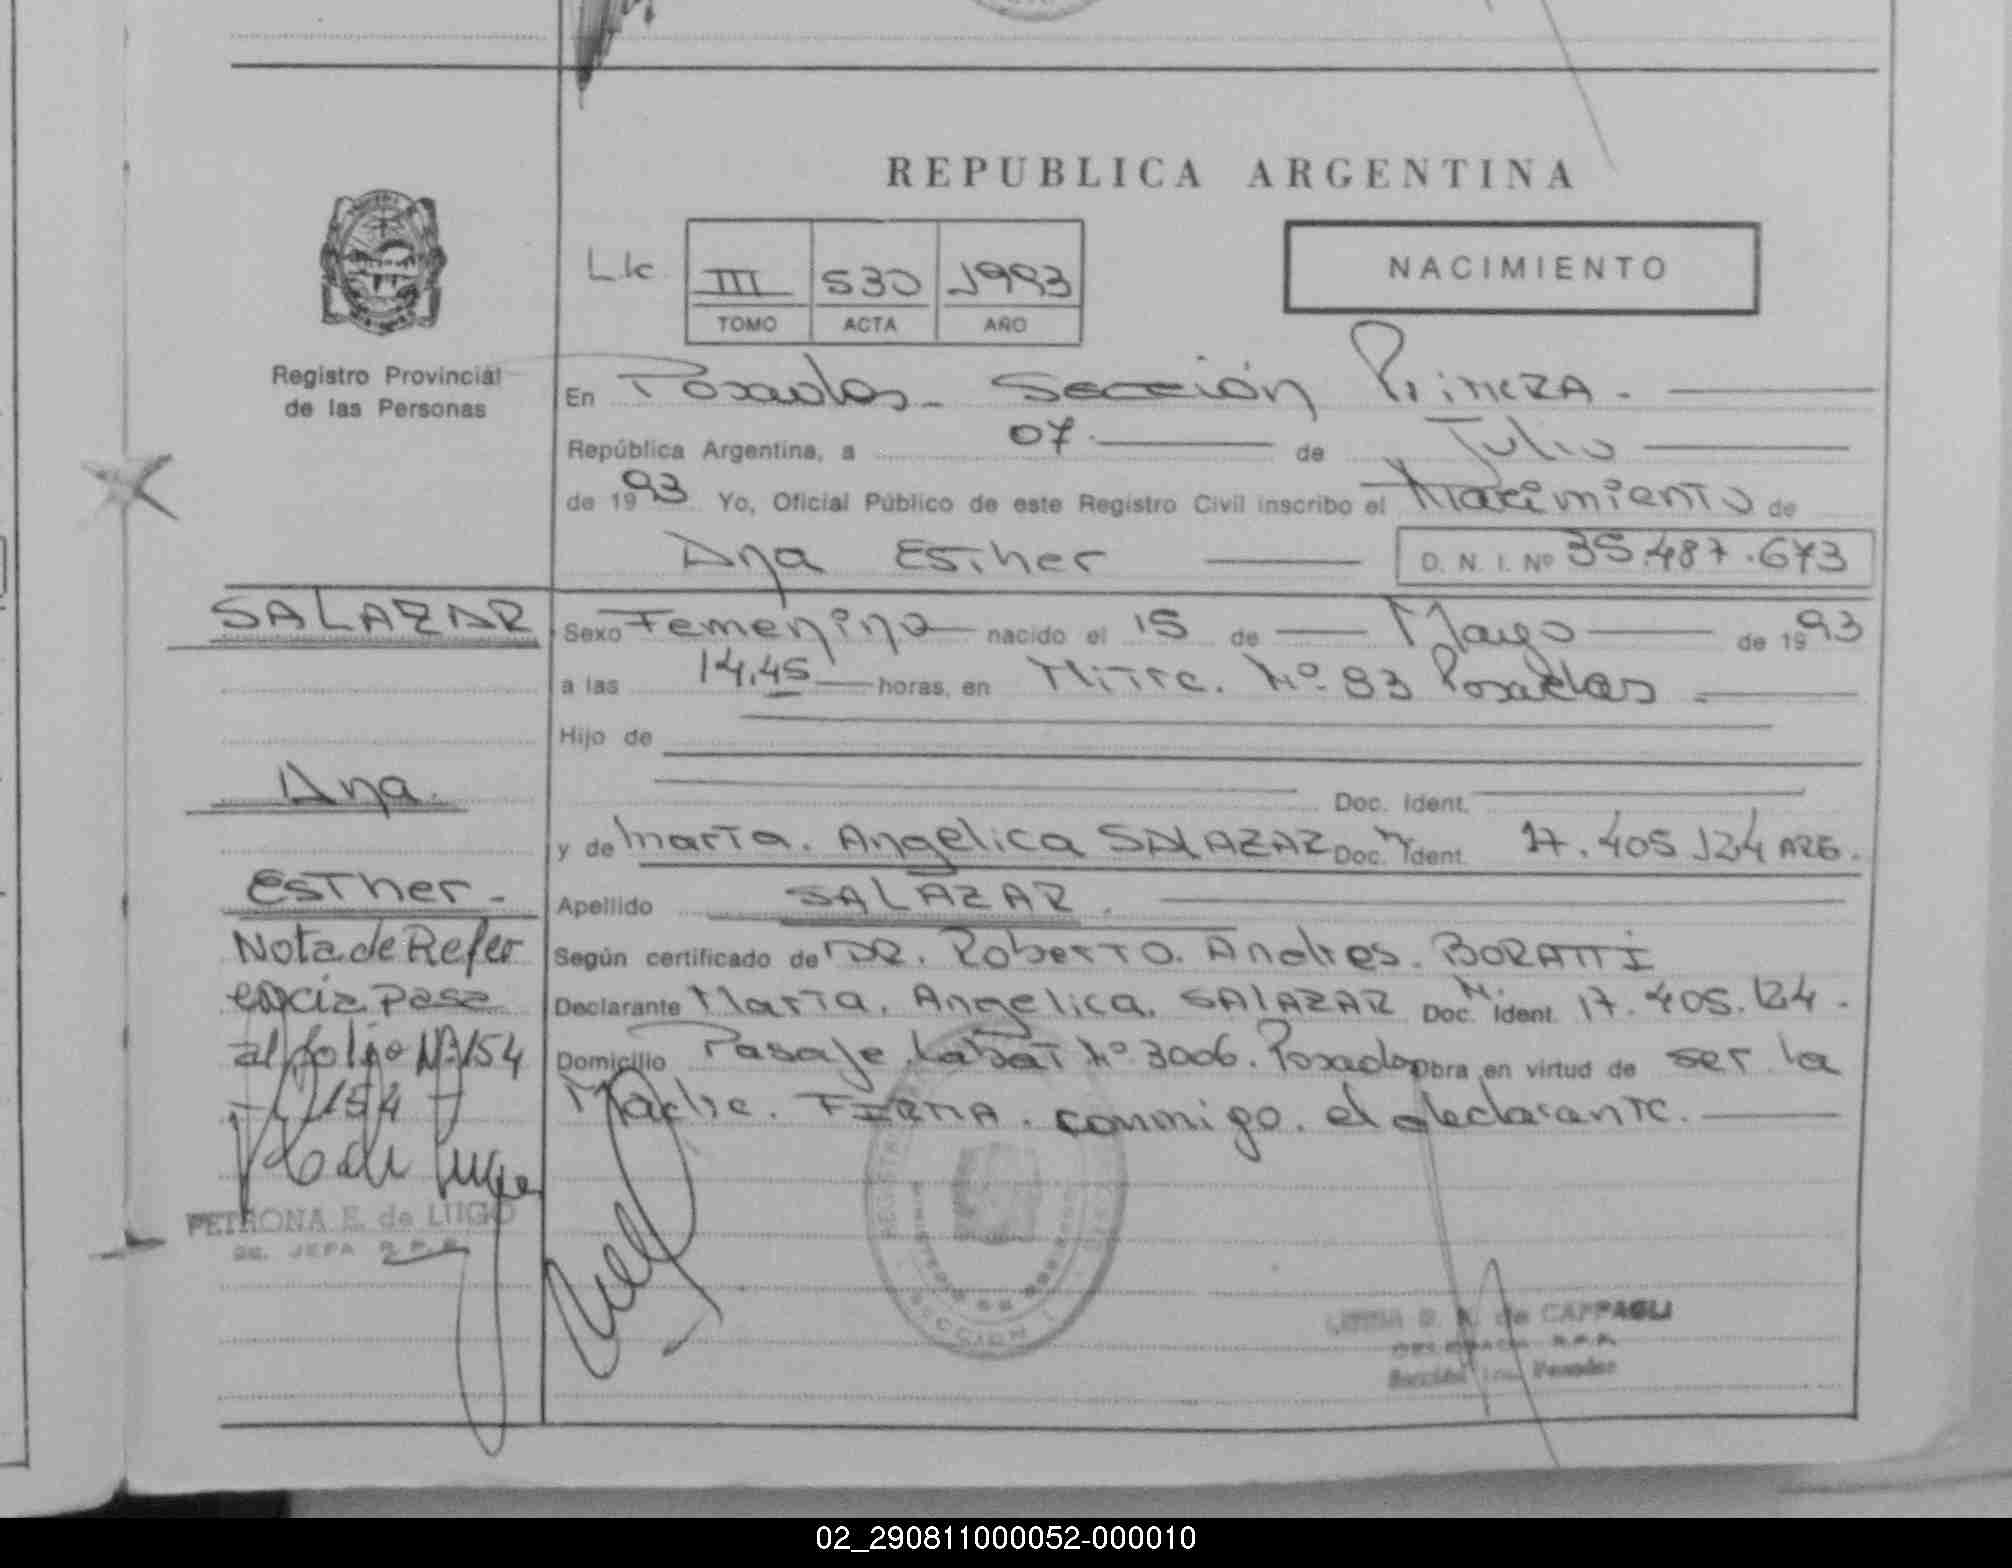 REPUBLICA ARGENTINA
Registro Provincial
de las Personas
Lic III 530 1993
TOMO ACTA AÑO
NACIMIENTO
En Posadas - Sección Primera.
República Argentina, a 07. de Julio
de 1993 Yo, Oficial Público de este Registro Civil inscribo el Nacimiento de
Ana Esther D. N. I. Nº 35.487.673
SALAZAR
Sexo Femenino nacido el 15 de Mayo de 1993
a las 14,45 horas, en Mitre. Nº 83 Posadas
Hijo de
Ana.
Doc. Ident.
y de Marta. Angelica SALAZAR Doc. N. Ident. 17.405.124 ARG.
Esther -
Apellido SALAZAR.
Nota de Refer
encia pasa
al folio Nº 154
154
Según certificado de DR. Roberto. Andres. BORATTI
Declarante Marta. Angelica. SALAZAR Doc. N. Ident. 17.405.124.
Domicilio Pasaje Labat Nº 3006. Posadas Obra en virtud de ser la
Madre. FIRMA. conmigo. el declarante.
PETRONA E. de LUGO
JEFA R.P.P.
SECCION 1
de CAPPAGLI
R.P.P.
Posadas
02_290811000052-000010